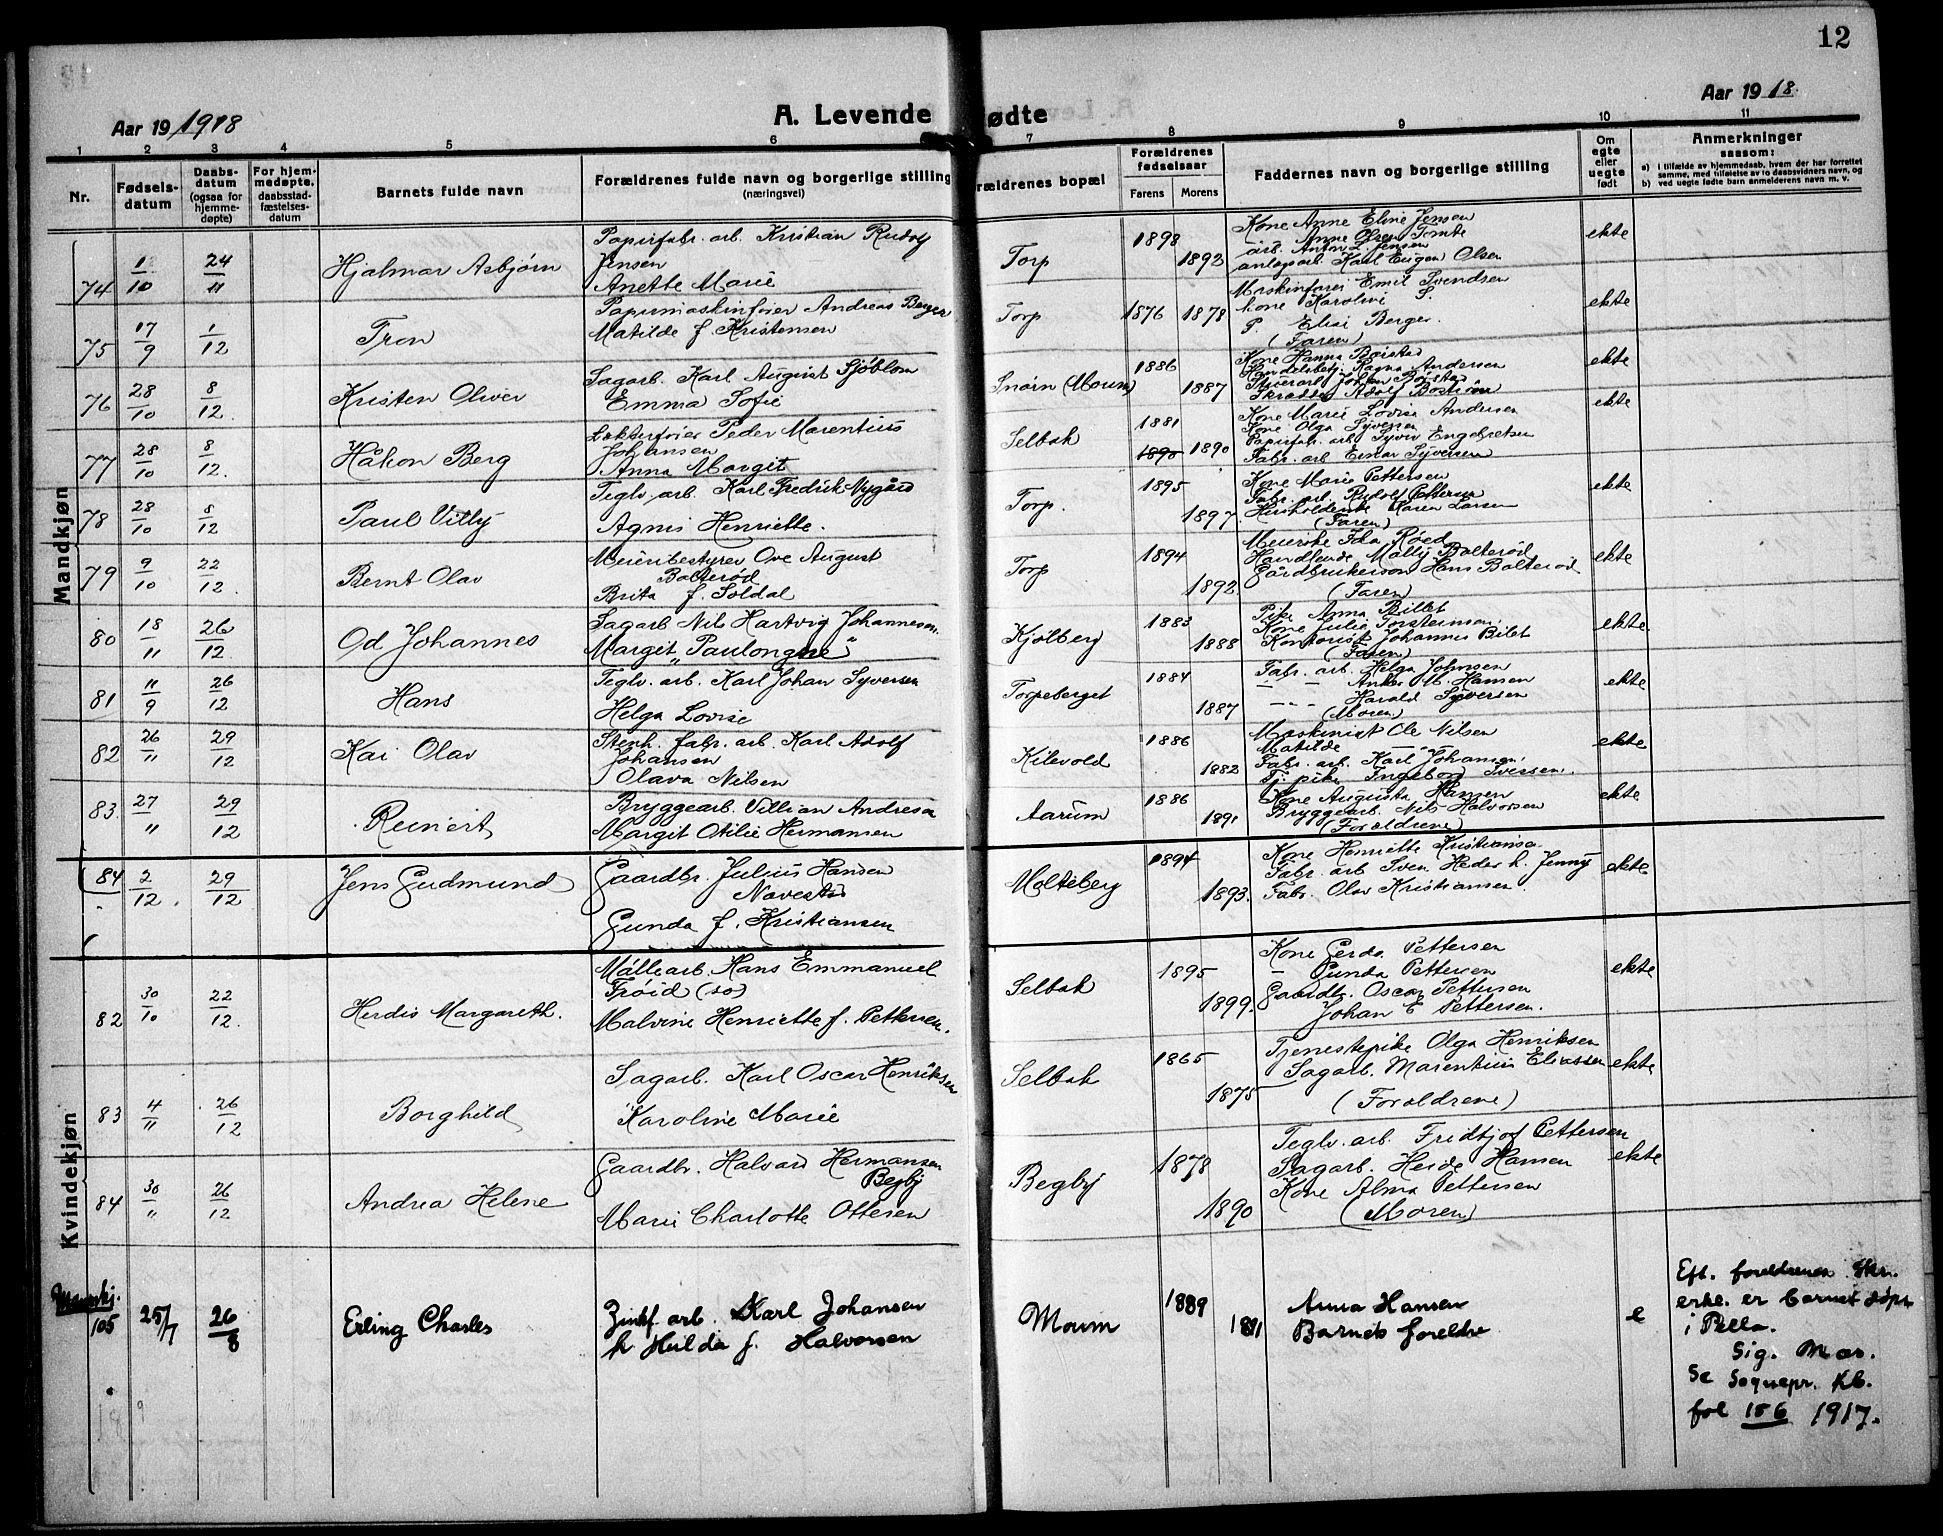 12
Aar 19 1918
A. Levende
ødte
Aar 19 18.
1 2 3 4 5 6 7 8 9 10 11
Nr.
Fødsels-
datum
Daabs-
datum
(ogsaa for
hjemme-
døpte)
For hjem-
medøpte,
daabsstad-
fæstelses-
datum
Barnets fulde navn
Forældrenes fulde navn og borgerlige stilling
(næringsvei)
rældrenes bopæl
Forældrenes
fødselsaar
Farens Morens
Faddernes navn og borgerlige stilling
Om
egte
eller
uegte
født
Anmerkninger
saasom:
a) i tilfælde av hjemmedaab, hvem der har forrettet
samme, med tilføielse av to daabsvidners navn, og
b) ved uegte fødte barn anmelderens navn m. v.
Mandkjøn
74 1/10 24/11 Hjalmar Asbjørn
Papirfabr. arb. Kristian Rudolf
Jensen
Anette Marie
Torp 1898 1892
Kone Anne Eline Jensen
Anne Olsen Tomte
arb. Anton L. Jensen
anlegsarb. Karl Eugen Olsen
ekte
75 17/9 1/12 Tron
Papirmaskinfører Andreas Berger
Matilde f. Kristensen
Torp 1876 1878
Maskinfører Emil Svendsen
kone Karoline S.
P. Elise Berger.
(Faren)
ekte
76 28/10 8/12. Kristen Oliver
Sagarb. Karl August Sjøblom
Emma Sofie
Snørn (Moum) 1886 1887
Kone Hanna Børstad
Handelsbetj. Ragna Andersen
Johan Børstad
Skrædder Adolf Boström
ekte
77 28/10 8/12. Håkon Berg
Lokterfører Peder Marentius
Johansen
Anna Margit
Selbak 1881 1890 1890
Kone Marie Lovise Andersen
Kone Olga Syversen
Papirfabr. arb. Syver Engebretsen
Fabr. arb. Einar Syversen
ekte
78 28/10 8/12 Paul Villy
Teglv. arb. Karl Fredrik Nygård
Agnes Henriette.
Torp. 1895 1897.
Kone Marie Pettersen
Fabr. arb. Rudolf Pettersen
Husholderske Karen Larsen
(Faren)
ekte
79 9/10 22/12. Bernt Olav
Meieribestyrer Ove August
Bolterød
Brita f. Soldal
Torp 1894 1892.
Meierske Ida Røed
Handlende Mally Bolterød
Gårdbrukerson Hans Bolterød
(Faren)
ekte
80 18/11 26/12. Od Johannes
Sagarb Nils Hartvig Johannesen.
Margit "Paulongne"
Kjølberg 1883 1888
Pike Anna Billet
Kone Julie Torsteinsen
Kontorist Johannes Bilet
(Faren)
ekte.
81 11/9 26/12 Hans
Teglv. arb. Karl Johan Syversen
Helga Lovise
Torpeberget 1884 1887
Fabr. arb. Helga Johnsen
— — Anker M. Hansen
— — Harald Syversen
(Moren)
ekte
82 26/11 29/12 Kai Olav
Stenh. fabr. arb. Karl Adolf
Johansen
Olava Nilsen
Kilevold 1886 1882
Maskinist Ole Nilsen
Matilde —
Fabr. arb. Karl Johansen.
Tj. pike Ingeborg Iversen.
ekte
83. 27/11 29/12 Reinert
Bryggearb. Villian Andresen
Margit Otilie Hermansen
Aarum 1886 1891
Kone Augusta Hansen
Bryggearb. Nils Halvorsen
(Forældrene)
ekte
84 2/12. 29/12 Jens Gudmund
Gaardbr. Julius Hansen
Navestad
Gunda f. Kristiansen
Molteberg 1894 1893.
Kone Henriette Kristiansen
Fabr. arb Sven Heder h. Jenny
Fabr. Olav Kristiansen
ekte
Kvindekjøn
82 30/10 22/12. Herdis Margareth.
Møllearb. Hans Emmanuel
Frøid (so)
Malvine Henriette f. Pettersen.
Selbak 1895 1899.
Kone Gerda Pettersen
— Gunda Pettersen
Gaardbr. Oscar Pettersen
Johan E Pettersen.
ekte
83 4/11 26/12 Borghild
Sagarb. Karl Oscar Henriksen
Karoline Marie
Selbak 1865 1875
Tjenestepike Olga Henriksen
Sagarb. Marentius Eliassen
(Forældrene)
ekte
84 30/11 26/12 Andrea Helene
Gaardbr. Halvard Hermansen
Begby
Marie Charlotte Ottesen
Begby 1878 1890
Teglv. arb. Fridtjof Pettersen
Sagarb. Heide Hansen
Kone Alma Pettersen
(Moren)
ekte
Mannkj.
105 25/7 26/8 Erling Charles
Zinkf arb. Karl Johansen
h Hulda f. Halvorsen
Moum 1889 1891
Anna Hansen
Barnets foreldre
e
Eft. foreldrenes skr.
erkl. er barnet døpt
i Pella.
Sig. Mos.
Se Sognepr. Kb.
fol 106 1917.